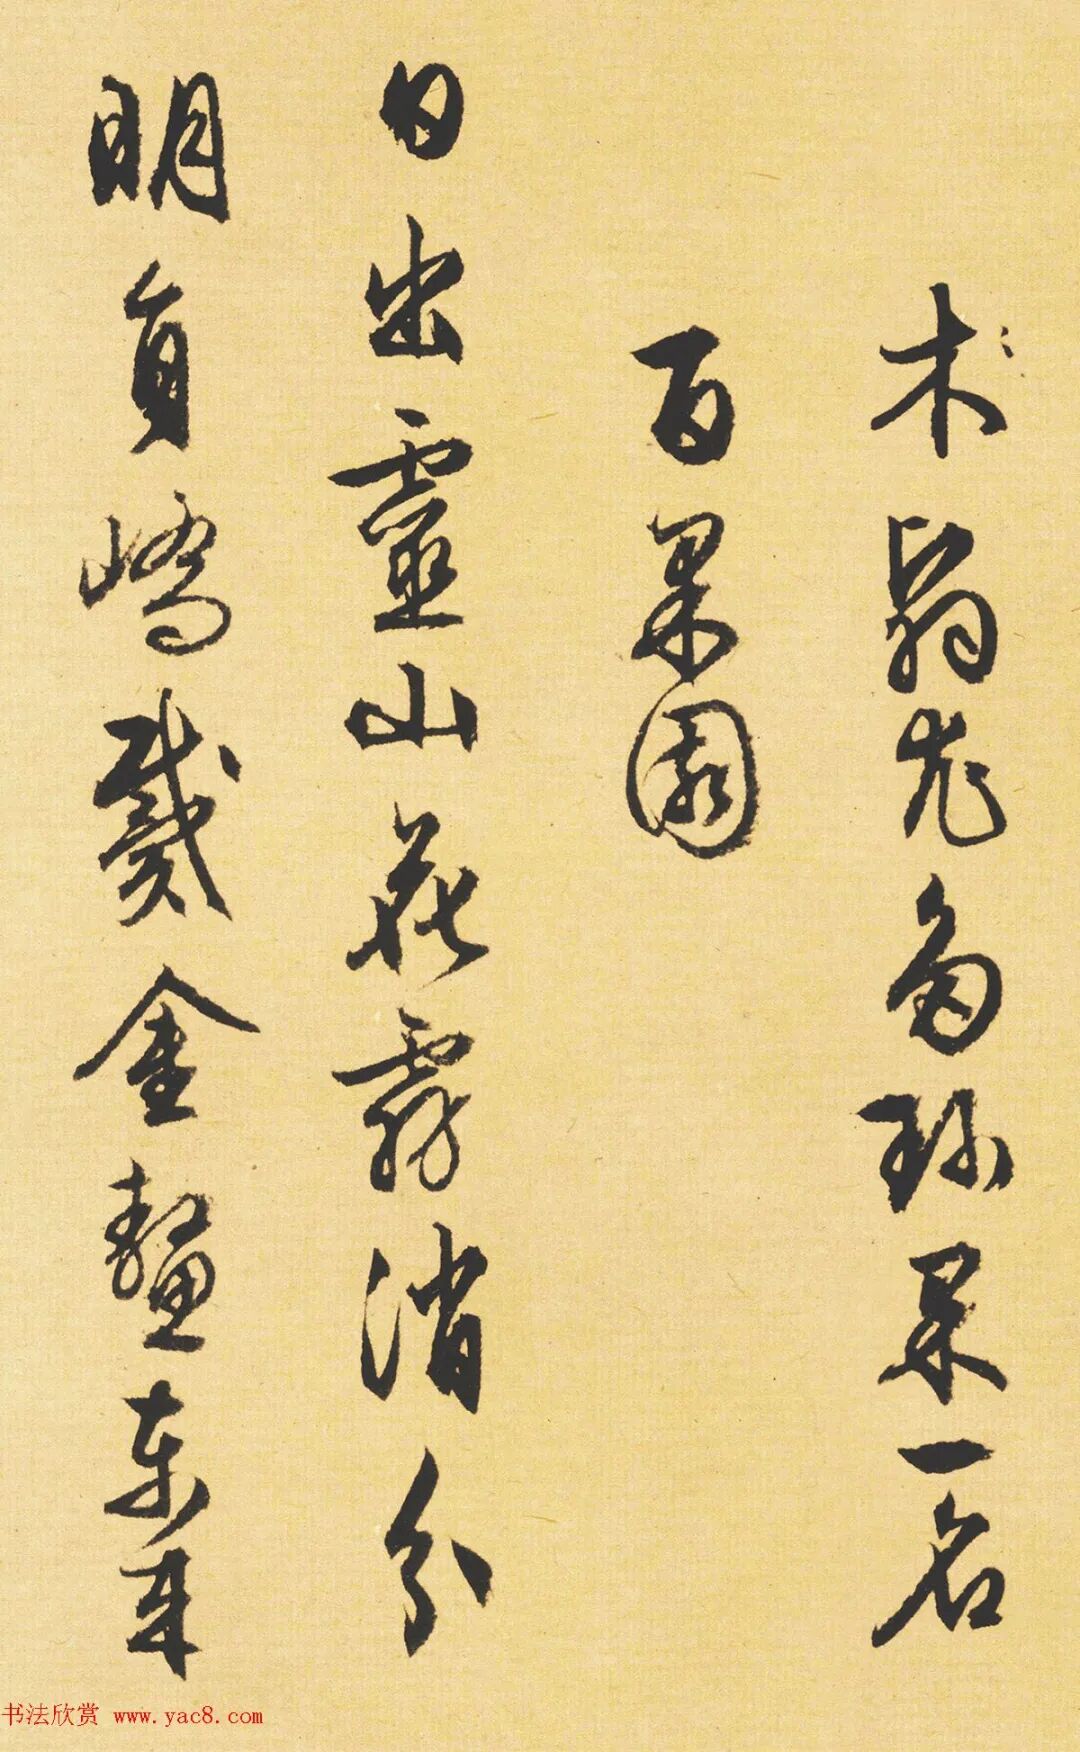 木尤多珍果一名
百果園
日出靈山花霧消分
明員嶠戴金鼇東來
书法欣赏 www.yac8.com